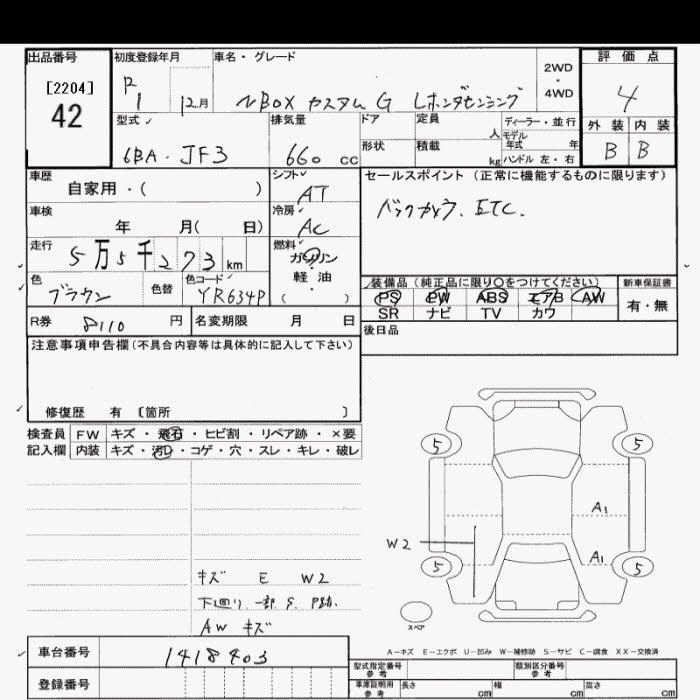 出品番号
[2204]
42
初度登録年月
R1 12月
車名・グレード
NBOX カスタム G Lホンダセンシング
2WD・4WD
評価点
4
外装 内装
B B
型式
6BA-JF3
排気量
660 cc
ドア
形状
定員 人
積載 kg
ディーラー・並行
モデル年式 年
ハンドル 左・右
車歴
自家用・( )
シフト
AT
セールスポイント (正常に機能するものに限ります)
バックカメラ. ETC.
車検
年 月( 日)
冷房
AC
走行
5万5千273 km
燃料
ガソリン
軽・油
( ・ )
色
ブラウン
色替
色コード
YR634P
装備品 (純正品に限り〇をつけてください)
PS PW ABS エアB AW
SR ナビ TV カワ
新車保証書
有・無
R券 8110 円
名変期限 月 日
後日品
注意事項申告欄 (不具合内容等は具体的に記入して下さい)
修復歴 有 [箇所 ]
検査員記入欄
FW キズ・飛石・ヒビ割・リペア跡・×要
内装 キズ・汚れ・コゲ・穴・スレ・キレ・破レ
5 5
A1
W2
A1
5 5
スペア
キズ E W2
下回り 一部 S. P跡.
AW キズ
A-キズ E-エクボ U-凹み W-補修跡 S-サビ C-腐食 XX-交換済
車台番号 1418403
登録番号
型式指定番号 参考
類別区分番号 参考
車庫証明用 参考
長さ cm 幅 cm 高さ cm